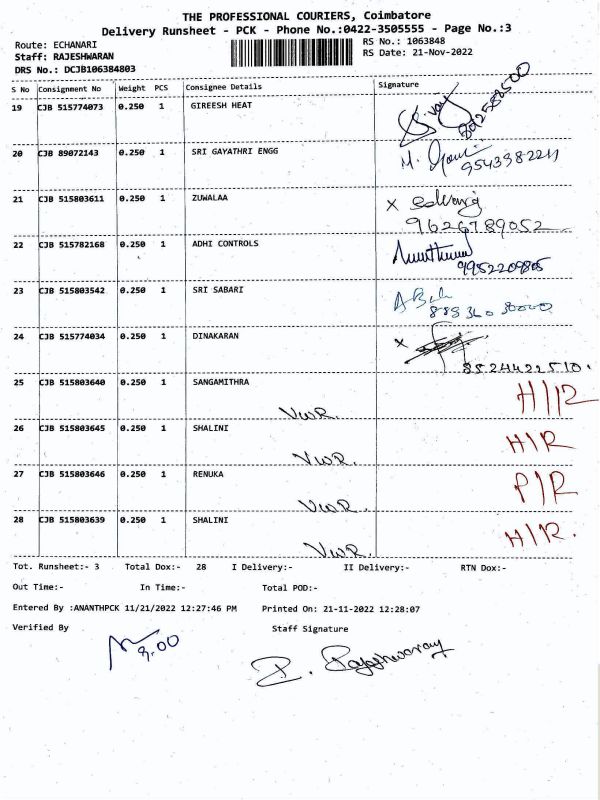 THE PROFESSIONAL COURIERS, Coimbatore
Delivery Runsheet - PCK - Phone No.:0422-3505555 - Page No.:3
Route: ECHANARI RS No.: 1063848
Staff: RAJESHWARAN RS Date: 21-Nov-2022
DRS No.: DCJB106384803
S No Consignment No Weight PCS Consignee Details Signature
19 CJB 515774073 0.250 1 GIREESH HEAT
20 CJB 89072143 0.250 1 SRI GAYATHRI ENGG
9543982211
21 CJB 515803611 0.250 1 ZUWALAA X
9626789052
22 CJB 515782168 0.250 1 ADHI CONTROLS
9952209805
23 CJB 515803542 0.250 1 SRI SABARI
24 CJB 515774034 0.250 1 DINAKARAN X
8524422510.
25 CJB 515803640 0.250 1 SANGAMITHRA H/R
VWR.
26 CJB 515803645 0.250 1 SHALINI H/R
VWR.
27 CJB 515803646 0.250 1 RENUKA P/R
VWR.
28 CJB 515803639 0.250 1 SHALINI H/R.
VWR.
Tot. Runsheet:- 3 Total Dox:- 28 I Delivery:- II Delivery:- RTN Dox:-
Out Time:- In Time:- Total POD:-
Entered By :ANANTHPCK 11/21/2022 12:27:46 PM Printed On: 21-11-2022 12:28:07
Verified By Staff Signature
8.00